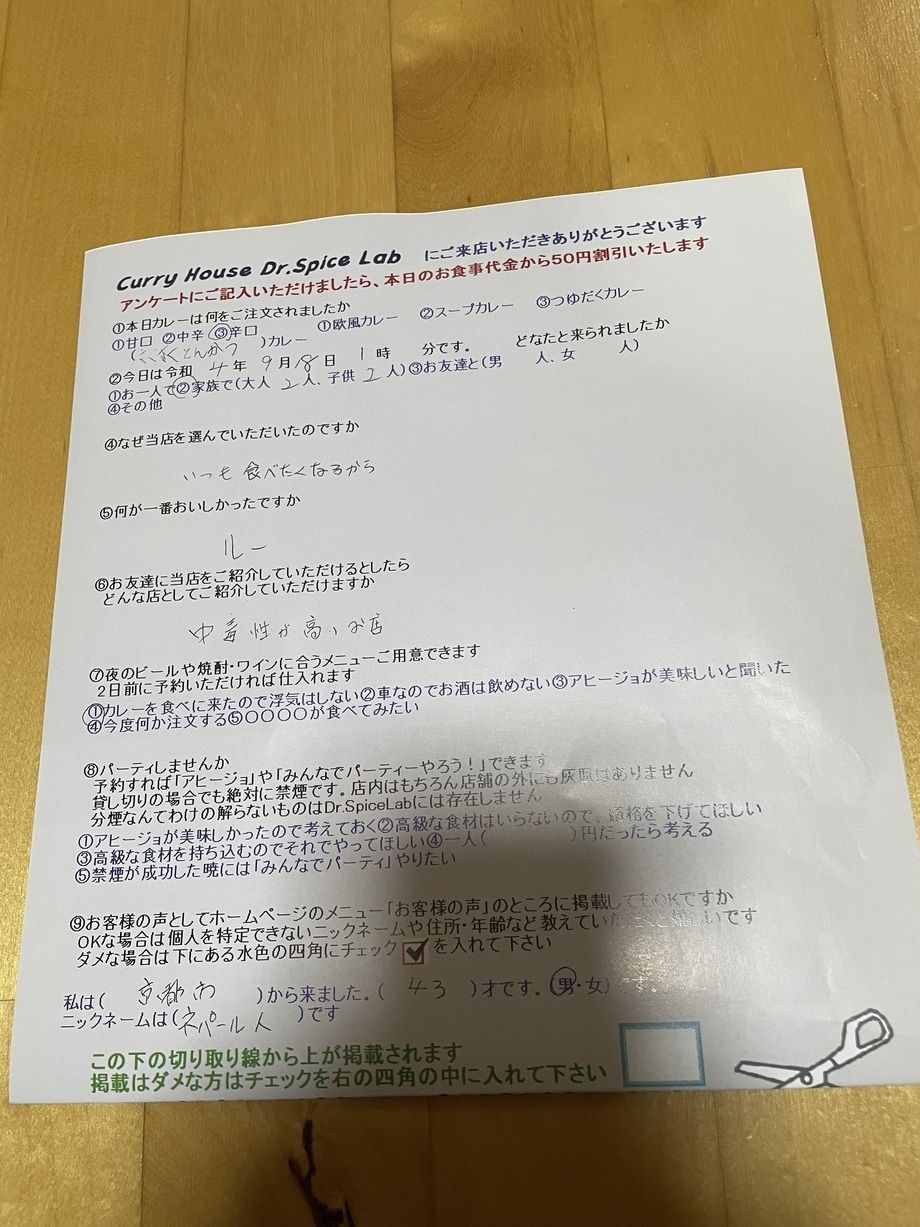 Curry House Dr.Spice Lab にご来店いただきありがとうございます
アンケートにご記入いただけましたら、本日のお食事代金から50円割引いたします
①本日カレーは何をご注文されましたか
①甘口 ②中辛 ③辛口 ①欧風カレー ②スープカレー ③つゆだくカレー
( とんかつ )カレー
②今日は令和 4 年 9 月 18 日 1 時 分です。 どなたと来られましたか
①お一人で②家族で(大人 2 人、子供 2 人)③お友達と(男 人、女 人)
④その他
④なぜ当店を選んでいただいたのですか
いつも食べたくなるから
⑤何が一番おいしかったですか
ルー
⑥お友達に当店をご紹介していただけるとしたら
どんな店としてご紹介していただけますか
中毒性が高いお店
⑦夜のビールや焼酎・ワインに合うメニューご用意できます
2日前に予約いただければ仕入れます
①カレーを食べに来たので浮気はしない②車なのでお酒は飲めない③アヒージョが美味しいと聞いた
④今度何か注文する⑤〇〇〇〇が食べてみたい
⑧パーティしませんか
予約すれば「アヒージョ」や「みんなでパーティーやろう!」できます
貸し切りの場合でも絶対に禁煙です。店内はもちろん店舗の外にも灰皿はありません
分煙なんてわけの解らないものはDr.SpiceLabには存在しません
①アヒージョが美味しかったので考えておく②高級な食材はいらないので、価格を下げてほしい
③高級な食材を持ち込むのでそれでやってほしい④一人( )円だったら考える
⑤禁煙が成功した暁には「みんなでパーティ」やりたい
⑨お客様の声としてホームページのメニュー「お客様の声」のところに掲載してもOKですか
OKな場合は個人を特定できないニックネームや住所・年齢など教えていただくと嬉しいです
ダメな場合は下にある水色の四角にチェック を入れて下さい
私は( 京都市 )から来ました。( 43 )才です。(男・女)
ニックネームは(ネパール人 )です
この下の切り取り線から上が掲載されます
掲載はダメな方はチェックを右の四角の中に入れて下さい